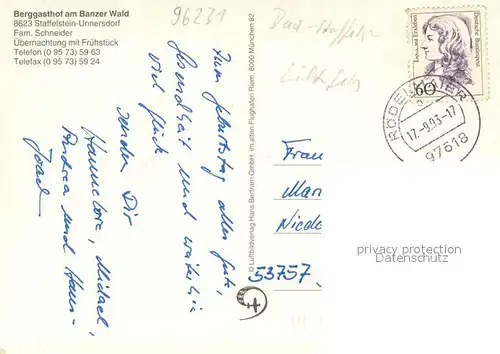 Berggasthof am Banzer Wald
8623 Staffelstein-Unnersdorf
Fam. Schneider
Übernachtung mit Frühstück
Telefon (0 95 73) 59 63
Telefax (0 95 73) 59 24
96231
Zum Geburtstag alles Gute,
Gesundheit und weiterhin
viel Glück
senden Dir
Hannelore, Michael,
Andrea und Hans-
© Luftbildverlag Hans Bertram GmbH, im alten Flughafen Riem, 8000 München 82
Frau
53757
Deutsche Bundespost
60
17.-9.93-17
97618
privacy protection
Ansichtskarten-